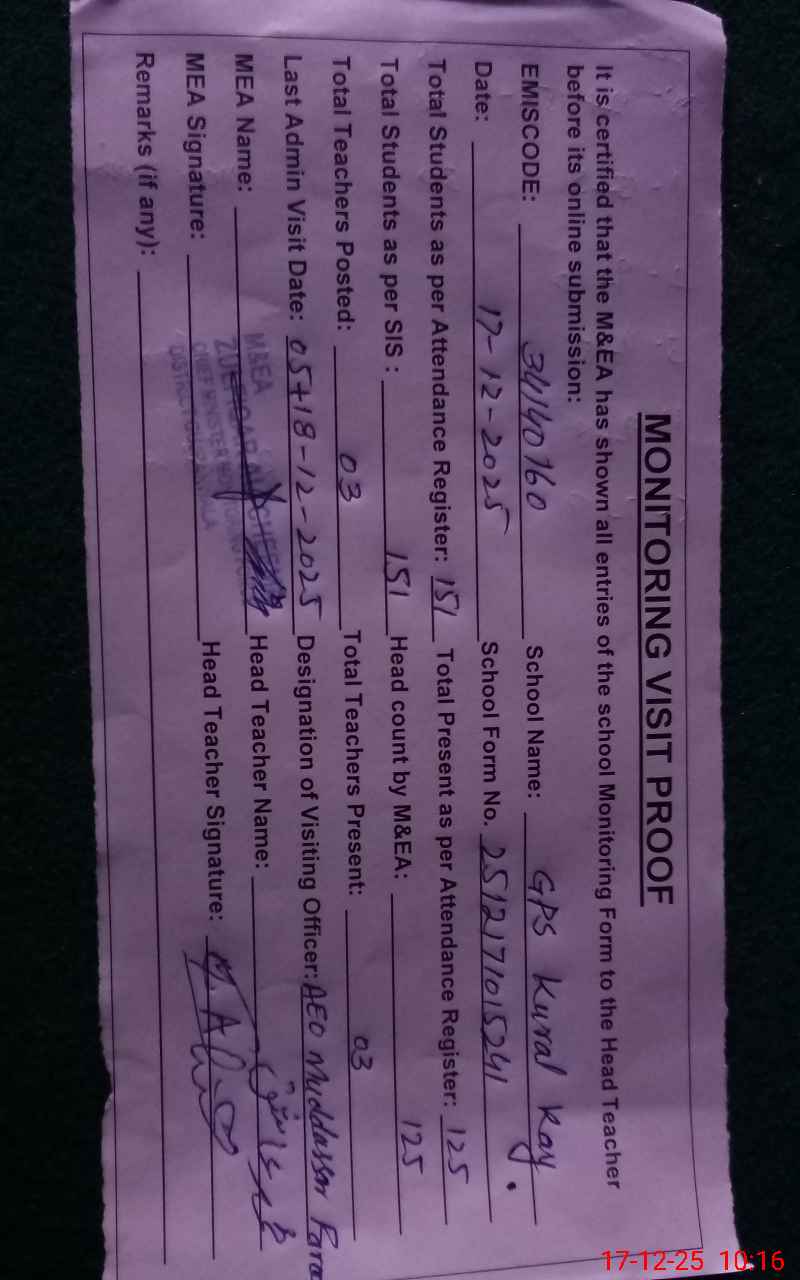 MONITORING VISIT PROOF
It is certified that the M&EA has shown all entries of the school Monitoring Form to the Head Teacher
before its online submission:
EMISCODE: 34140160 School Name: GPS Kural Kay.
Date: 17-12-2025 School Form No. 2512171015241
Total Students as per Attendance Register: 151 Total Present as per Attendance Register: 125
Total Students as per SIS : 151 Head count by M&EA: 125
Total Teachers Posted: 03 Total Teachers Present: 03
Last Admin Visit Date: 05+18-12-2025 Designation of Visiting Officer: AEO Muddassar
MEA Name: Head Teacher Name:
M&EA
MEA Signature: Head Teacher Signature:
CHIEF MINISTER
DISTRICT
Remarks (if any):
17-12-25 10:16